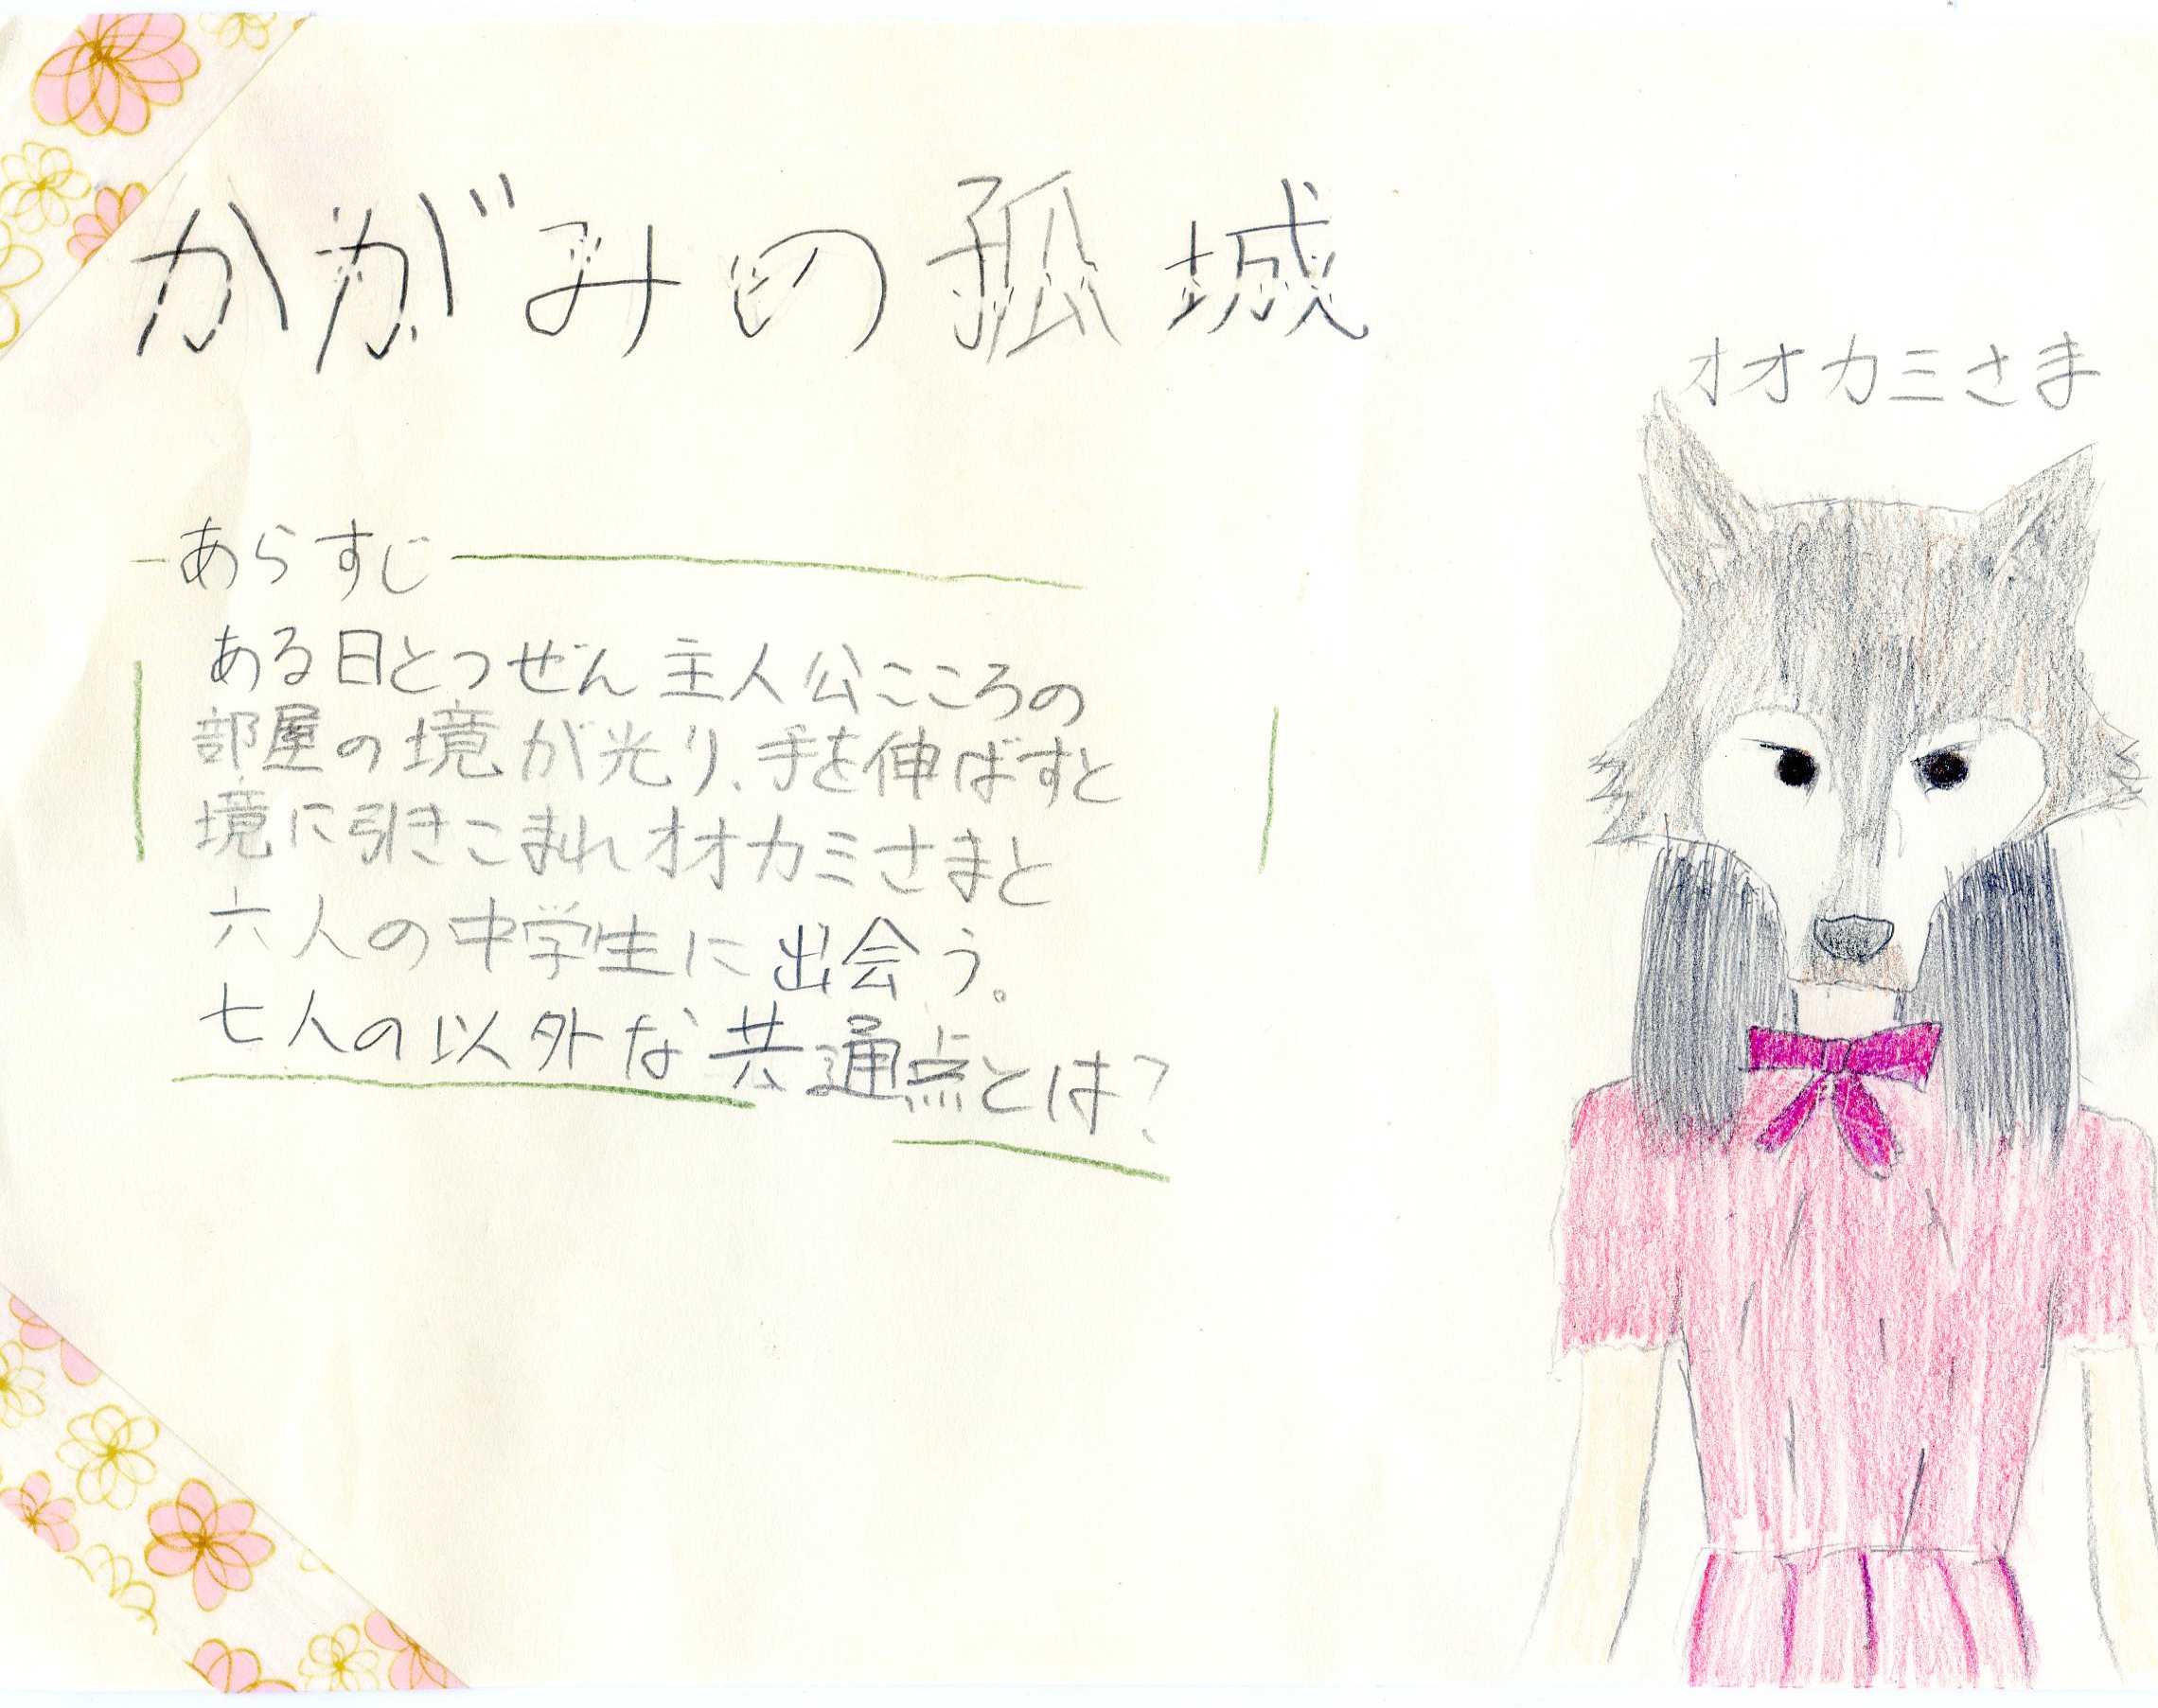 かがみの孤城
オオカミさま
あらすじ
ある日とつぜん主人公こころの
部屋の境が光り、手を伸ばすと
境に引きこまれオオカミさまと
六人の中学生に出会う。
七人の以外な共通点とは?